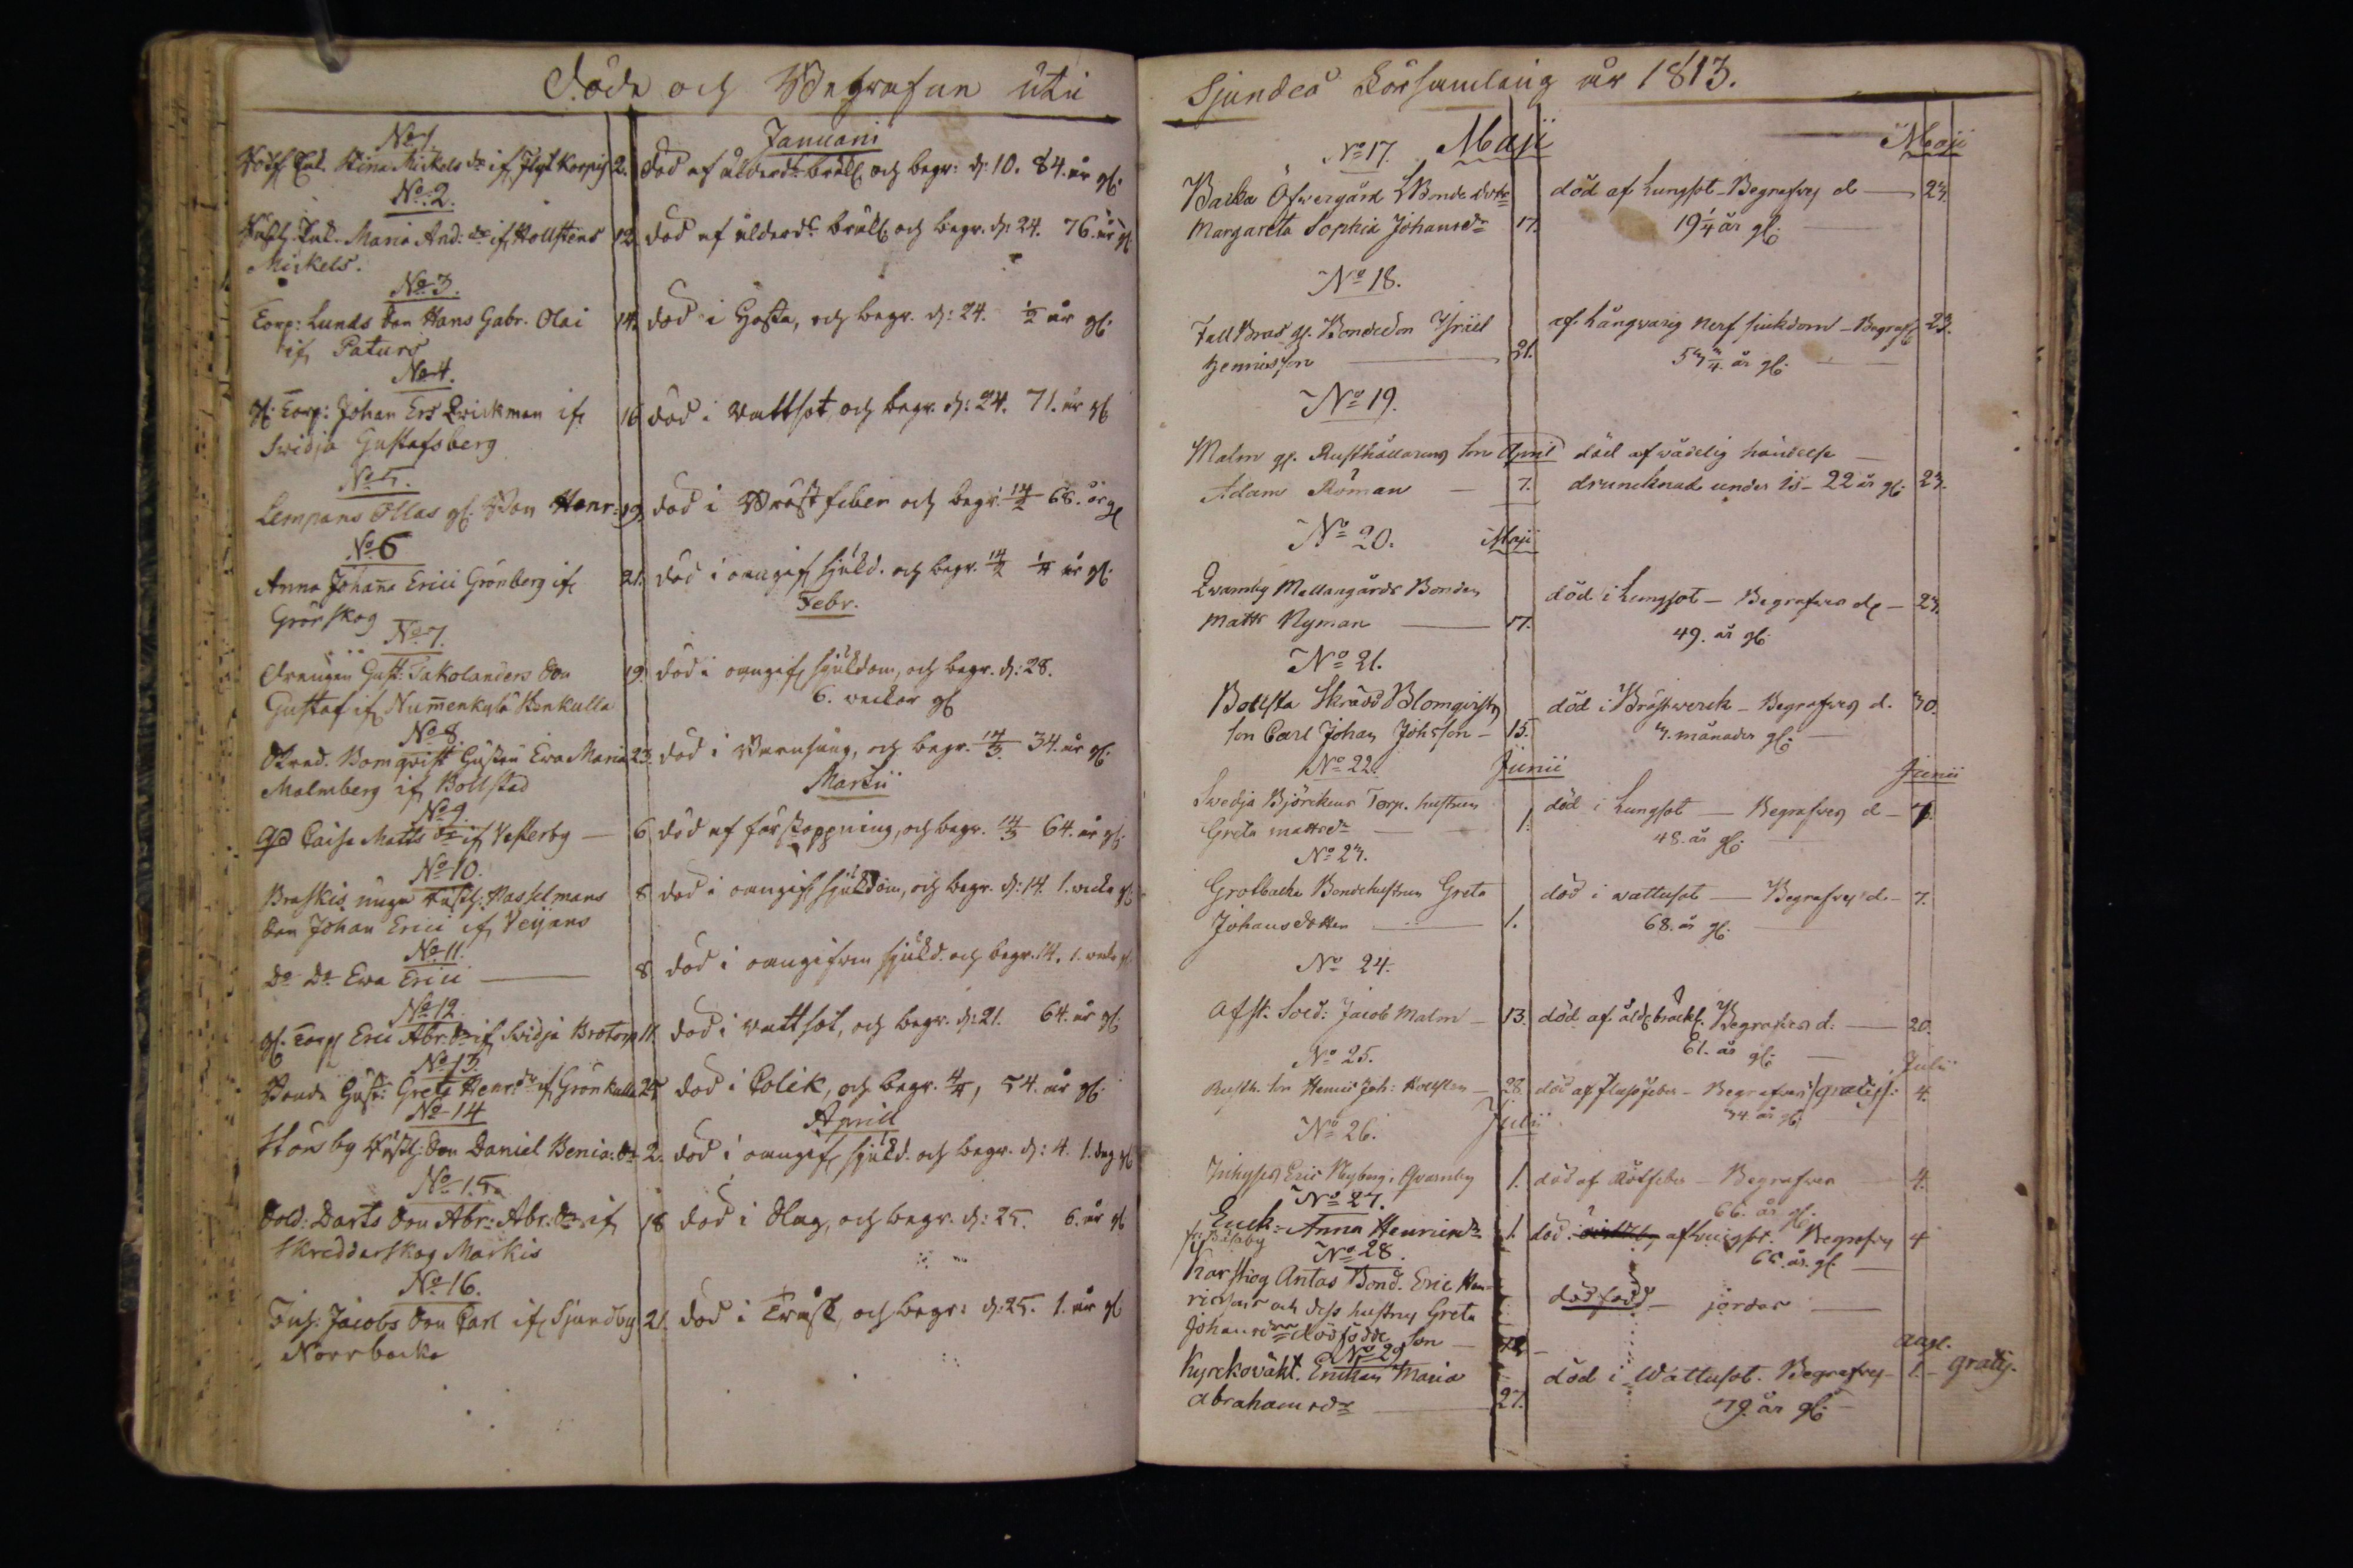 Döde och Begrafne uti
No 1. Januarii
Enk. Stina Mickels dr 2. död af ålderd: bräckl och begr: d: 10. 84. år gl.
No 2.
Maria And: dr ifr Hollstens 12. död af ålderds bräckl och begr. d: 24. 76. år gl
Mickels.
No 3.
Torp: Lunds Son Hans Gabr. Olai 14. död i Hosta, och begr. d: 24. 1/2 år gl.
ifr Paturs
No 4.
gl. Torp: Johan Ers Qvickman ifr 16. död i Vattsot och begr. d: 24. 71. år gl
Svidja Gustafsberg
No 5.
Lempans Ollas gl. Son Henr: 19. död i Bröstfeber och begr: 14/2 68. år gl
No 6
Anna Johana Erici Grönberg ifr 21. död i oangif. sjukd. och begr. 14/2 1/4 år gl.
Grönskog Febr.
No 7.
Drängen Gust: Takolanders Son 19. död i oangif. sjukdom, och begr. d: 28.
Gustaf ifr Numenkylä Stenkulla 6. weckor gl
No 8.
Skred. Bomqvist Hustru Ewa Maria 23. död i Barnsäng, och begr. 14/3. 34. år gl.
Malmberg ifr Bollstad Martii
No 9.
Caisa Matts dr ifr Vesterby — 6. död af förstoppning, och begr. 14/3 64. år gl.
No 10.
Braskis unga Hasselmans 8 död i oangif. sjukdom, och begr. d: 14. 1. wecka gl
Son Johan Erici ifr Veijans
No 11.
Do Do Ewa Erici — 8 död i oangifven sjukd. och begr. 14. 1. wecka gl
No 12.
gl. Torp Eric Abr. Sn ifr Svidja Brotorp 11. död i vattsot, och begr. d: 21. 64. år gl.
No 13.
Bonde Hust: Greta Henrs dr ifr Grönkulla 25 död i Colik, och begr. 4/4, 54. år gl.
No 14 April
Störsby Son Daniel Benia: Sn 2. död i oangif. sjukd. och begr. d: 4. 1. dag gl
No 15.
Sold: Darts Son Abr: Abr. Sn ifr 18 död i Slag, och begr. d: 25. 6. år gl
Skreddarskog Markis
No 16.
Inh: Jacobs Son Carl ifr Sjundby 21. död i Tråsk, och begr: d: 25. 1. år gl
Norrbacka
Sjundeå Församling år 1813.
No 17. Maji Maji
Backa Öfwergård Bonde dotr död af Lungsot - Begrafves d — 23.
Margareta Sophia Johansdr 17. 19 1/4 år gl.
No 18.
Fall Bras gl. Bondeson Isräel af Långvarig Nerf siukdom - Begrafs 23.
Hennisson — 21. 53 3/4. år gl.
No 19.
Malm gl. Rusthållarens Son April död af wådelig händelse —
Adam Roman — 7. drunknade under is - 22 år gl. 23.
No 20. Maji
Qvarnby Mellangårds Bonden död i Lungsot — Begrafves d — 23.
Matts Nyman — 17. 49. år gl.
No 21.
Bollsta Skrädd Blomqvists död i Bröstwerck - Begrafves d. 30.
Son Carl Johan Johsson — 15. 3. månader gl.
No 22. Junii Junii
Svedja Björckens Torp. hustrun död i Lungsot — Begrafves d — 7.
Greta Mattsdr — 1. 48. år gl.
No 23.
Grotbacka Bondehustrun Greta död i wattusot — Begrafves d — 7.
Johansdotter — 1. 68. år gl.
No 24.
Afsk: Sold: Jacob Malm — 13. död af åld: bräckl. Begrafves d: — 20.
61. år gl. —
No 25. Julii
Rusth. Son Henric Joh: Hollsten — 28. död af flussfeber - Begrafves /gratis/: 4.
No 26. Julii 34. år gl.
Inhyses Eric Nyberg i Qvarnby 1. död af Rötfeber — Begrafven — 4.
No 27. 66. år gl.
Enck: Anna Henricsdr 1. död af Lungsot. Begrafves 4
No 28. 66. år. gl. —
Karskog Antas Bond. Eric Hen-
ricsons och dess hustrus Greta dödfödd — jordas —
Johansdr dödfödde Son —
No 29 Augt.
Kyrckovakt. Enckan Maria död i Wattusot. Begrafves — 1. — gratis.
Abrahamsdr — 27. 79. år gl.